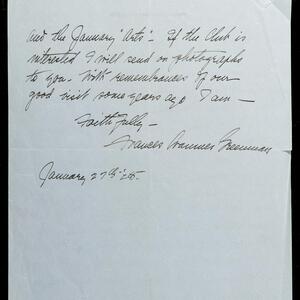 and the January "Arts" – If the Club is
interested I will send on photographs
to you. With remembrances of our
good visit some years ago I am –
Faithfully –
Frances Cranmer Greenman
January 27th '25.